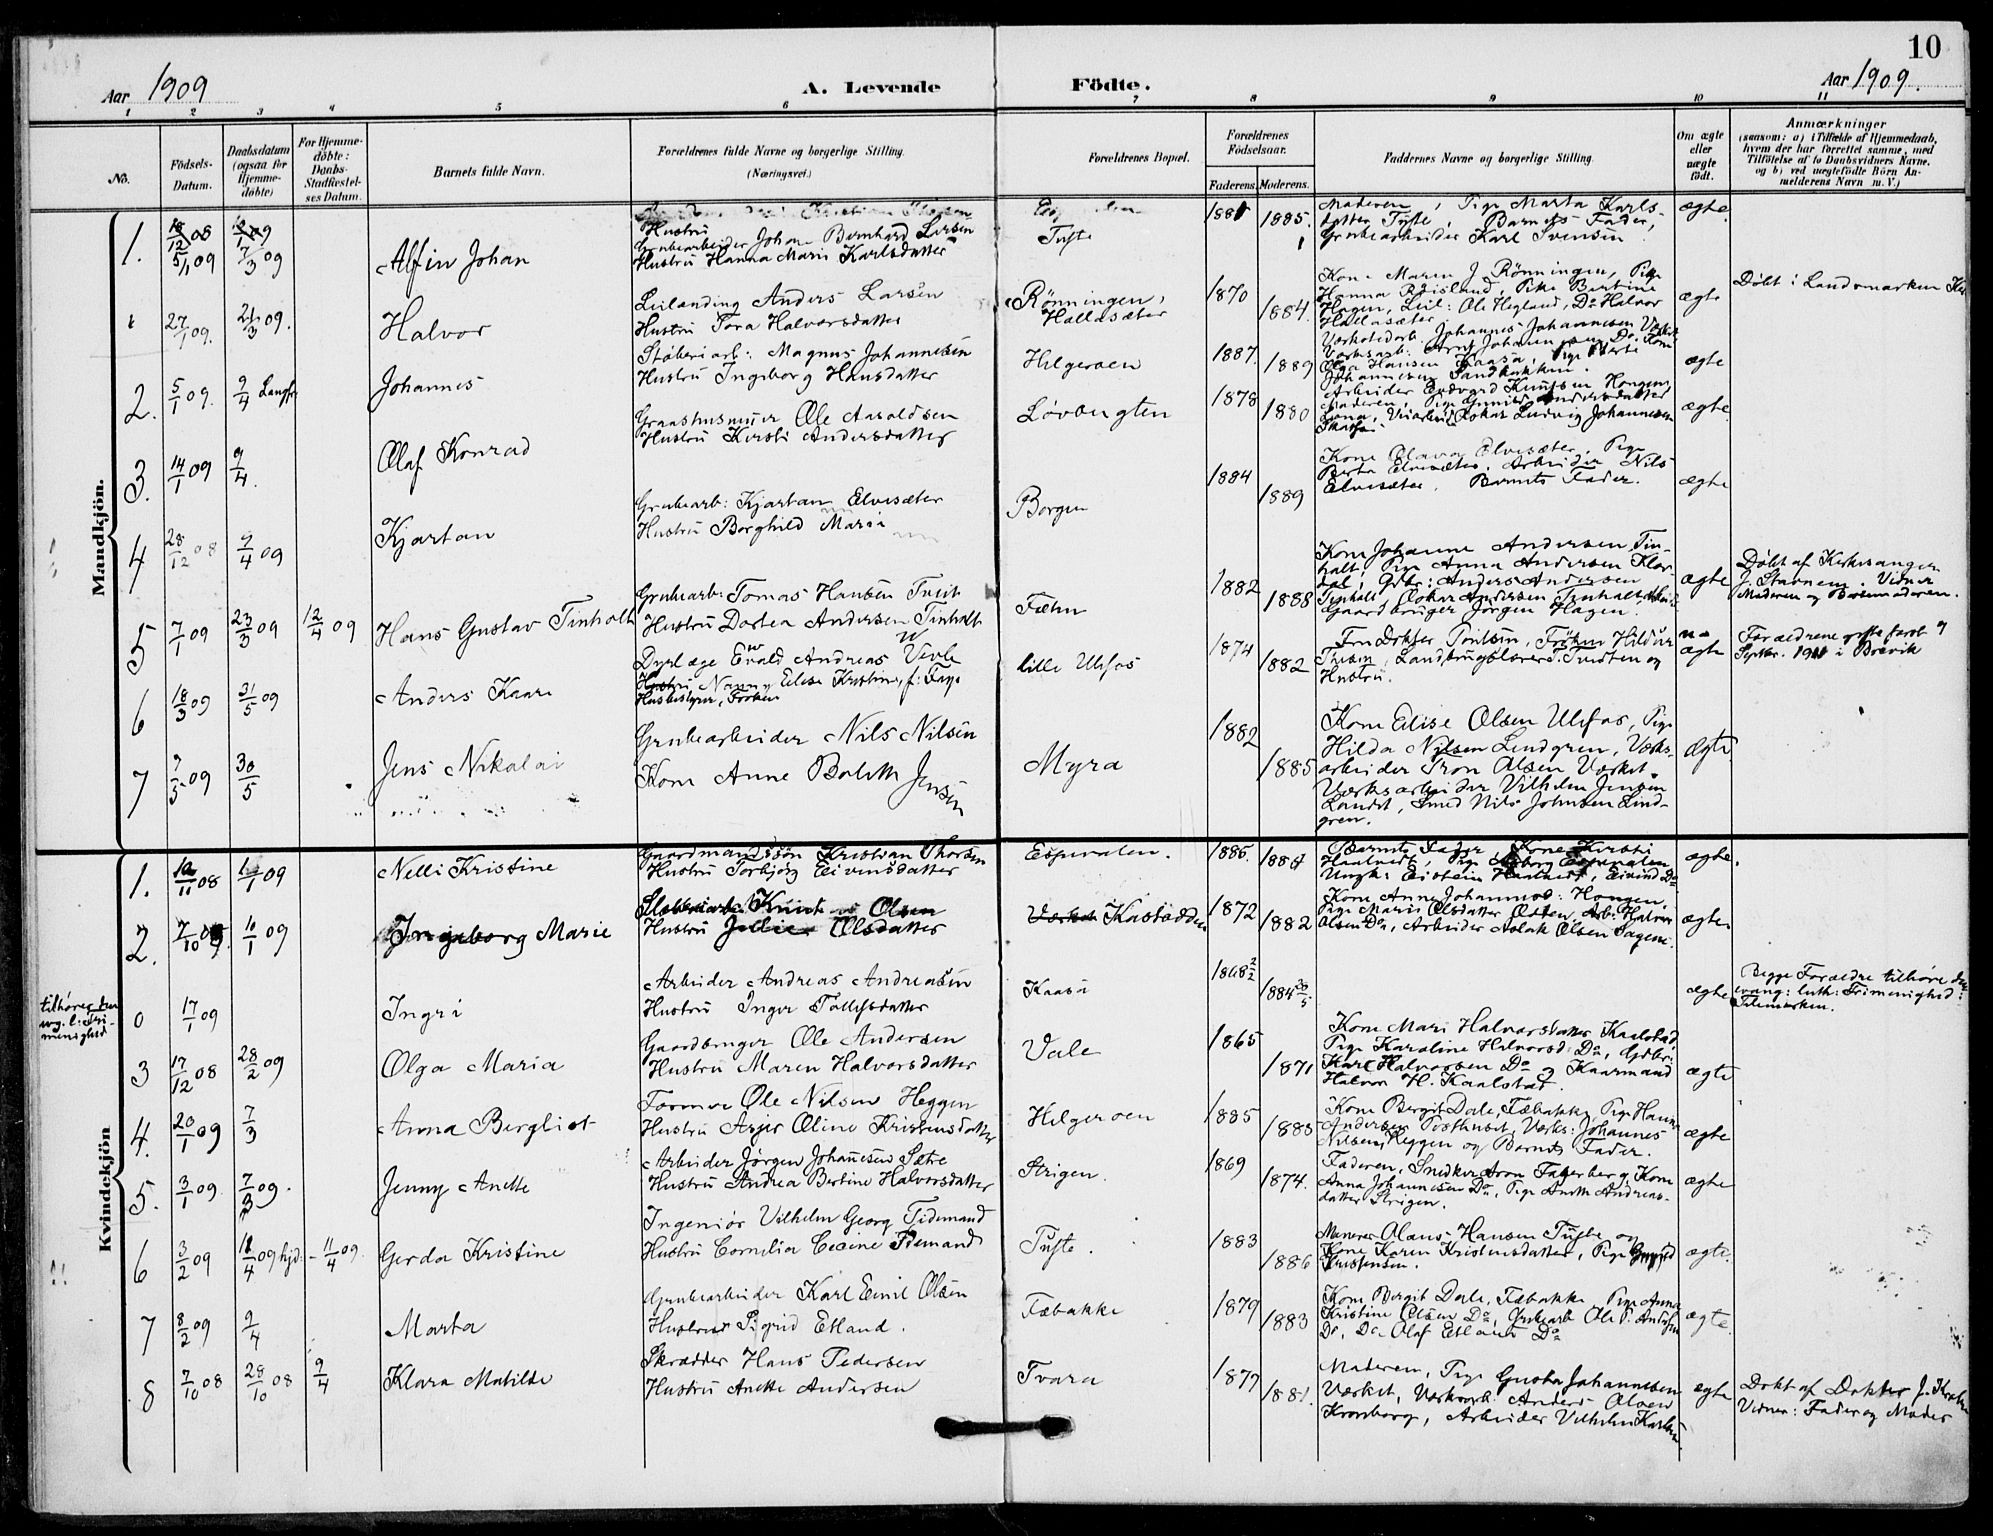 10
Aar 1909
A. Levende Födte.
Aar 1909.
1 2 3 4 5 6 7 8 9 10 11
No.
Födsels-Datum.
Daabsdatum (ogsaa for Hjemme-döbte)
For Hjemme-döbte: Daabs-Stadfæstel-ses Datum.
Barnets fulde Navn.
Forældrenes fulde Navne og borgerlige Stilling.
(Næringsvei.)
Forældrenes Bopæl.
Forældrenes Födselsaar.
Faderens. Moderens.
Faddernes Navne og borgerlige Stilling.
Om ægte eller uægte födt.
Anmærkninger
(saasom: a) i Tilfælde af Hjemmedaab,
hvem der har forrettet samme, med
Tilföielse af to Daabsvidners Navne,
og b) ved uægtefödte Börn An-
melderens Navn m. V.)
Mandkjön.
1. 5/1 09 7/3 09 Alfin Johan
Hustru
Grubearbeider Johan Bernhard Larsen
Hustru Hanna Marie Karlsdatter
Tufte
1881 1885.
Moderen, Pige Marta Karls-
datter Tufte, Barnets Fader,
Grubearbeider Karl Svensen
ægte
27/1 09. 21/3 09. Halvor
Leilænding Anders Larsen
Hustru Tora Halvorsdatter
Rönningen, Hallasæter
1870 1884.
Kone Maren J. Rönningen, Pige
Hanna Röisland, Pike Bertine
Haugen, Leil: Ole Hegland, Do Halvor
Hallasæter
ægte
Döbt i Landsmarken
2. 5/1 09. 9/4 Langfr Johannes
Støberiarb: Magnus Johannesen
Hustru Ingeborg Hansdatter
Helgeroen
1887. 1889
Johannes Johannesen
Olga Hansen Kaasa, Pige
Johannesen Sandbakken.
ægte
3. 14/1 09 9/4. Olaf Konrad
Ole Aaroldsen
Hustru Kirsti Andersdatter
Løvbugten
1878 1880
Arbeider Edvard Knutsen Haugen,
Moderen, Pige Gunild Andersdatter
Oskar Ludvig Johannesen
ægte.
4 28/12 08 9/4 09 Kjartan
Grubearb: Kjartan Elvesæter
Hustru Borghild Marie
Borgen
1884 1889
Kone Olava Elvesæter, Pige
Berta Elvesæter, Arbeider Nils
Elvesæter, Barnets Fader.
ægte
5 7/1 09 23/3 09 12/4 09 Hans Gustav Tinholt
Grubearb: Tomas Hansen Tveit
Hustru Dortea Andersen Tinholt
Fæhn
1882 1888
Kone Johanne Andersen Tin-
halt, Pige Anna Andersen Klov
dal, Gdbr: Anders Andersen
Tinhalt, Oskar Andersen Tinhalt
Gaardbruger Jörgen Hagen.
ægte
Döbt af Kirkesanger
J. Stavnem. Vidner
Moderen og Bestemoderen.
6 18/3 09 31/5 09 Anders Kaare
Dyrlæge Evald Andreas Vevle
Hustru Nanny Elise Kristine, f: Faye
Husbestyrer, Frøken
lille Ulefos
1874 1882
Fru Dokter Pontsen, Fröken Hildur
Tresen, Landbrugslærer S. Tveiten og
Hustru.
u-ægte
Forældrene gifte først 9
Septbr. 1911 i Brevik
7 7/5 09 30/5 Jens Nikolai
Grubearbeider Nils Nilsen
Kone Anne Bolette Jensen
Myra
1882 1885
Kone Elise Olsen Ulefos, Pige
Hilda Nilsen Lindgren, Værks-
arbeider Tron Olsen Værket.
Værksarbeider Vilhelm Jensen
Landet, Smed Nils Johnsen Lind-
gren.
ægte
Kvindekjön
1. 10/11 08 1/1 09 Nelli Kristine
Gaardmandssön Kristian Thorsen
Hustru Torbjörg Eivensdatter
Espevalen.
1885. 1884
Barnets Fader, Kone Kirsti
Haatvedt, Pige Espevalen
Ungk: Eistein Haatvedt, Eivind Do
ægte.
2. 7/10 08. 10/1 09 Ingeborg Marie
Støberiarb: Knut Olsen
Hustru Julie Olsdatter
Værket Kastødden
1872 1882
Kone Anne Johannesd: Haugen,
Pige Marie Olsdatter Do, Arb: Halvor
Olsen Do, Arbeider Aslak Olsen Sagene.
ægte.
tilhører den
evg. l: Fri-
menighed
0 17/1 09 Ingri
Arbeider Andreas Andreasen
Hustru Inger Tollefsdatter
Kaasa
1868 2/2 1884 20/5.
ægte
Begge Forældre tilhöre den
evang: luth: Frimenighed:
Telemarken.
3 17/12 08 28/2 09 Olga Maria
Gaardbruger Ole Andersen
Hustru Maren Halvorsdatter
Vale
1865 1871
Kone Mari Halvorsdatter Kaalstad,
Pige Karoline Halvorsd: Do, Gdbr:
Karl Halvorsen Do og Kaarmand
Halvor H. Kaalstad.
ægte
4. 20/1 09 7/3 Anna Bergliot
Former Ole Nilsen Heggen
Hustru Asjer Oline Kristensdatter
Helgeroen
1885 1888
Kone Bergit Dale, Fæbakke, Pige Hanna
Andersen Posthuset, Værks: Johannes
Nilsen, Heggen og Barnets Fader.
ægte
5. 3/1 09. 7/3 09. Jenny Anette
Arbeider Jörgen Johannesen Sætre
Hustru Andrea Bertine Halvorsdatter
Strigen.
1869 1874.
Faderen, Snedker Aron Fagerberg, Kone
Anna Johannesen Do, Pige Anette Andreas-
datter Strigen.
ægte
6 3/2 09 11/4 09 hjd: 11/4 09. Gerda Kristine
Ingeniör Vilhelm Georg Tidemand
Hustru Cornelia Cecine Tidemand
Tufte.
1883 1886
Murer Olaus Hansen Tufte og
Kone Karen Kristensdatter, Pige
Kristensen.
ægte.
7 8/2 09 9/4 Marta
Grubearbeider Karl Emil Olsen
Hustru Sigrid Etland.
Fæbakke
1879 1883
Kone Bergit Dale, Fæbakke, Pige Anna
Kristine Olsen Do, Grubearb Ole P. Andersen
Do, Do Olaf Etland Do
ægte.
8 7/10 08 28/10 08 9/4 Klara Matilde
Skrædder Hans Pedersen
Hustru Anette Andersen
Tvara
1877 1881.
Moderen, Pige Gusta Johannesen
Værket, Værksarb: Anders Olsen
Kronborg, Arbeider Vilhelm Karlsen.
ægte
Døbt af Dokter J. Krohn
Vidner: Fader og Moder